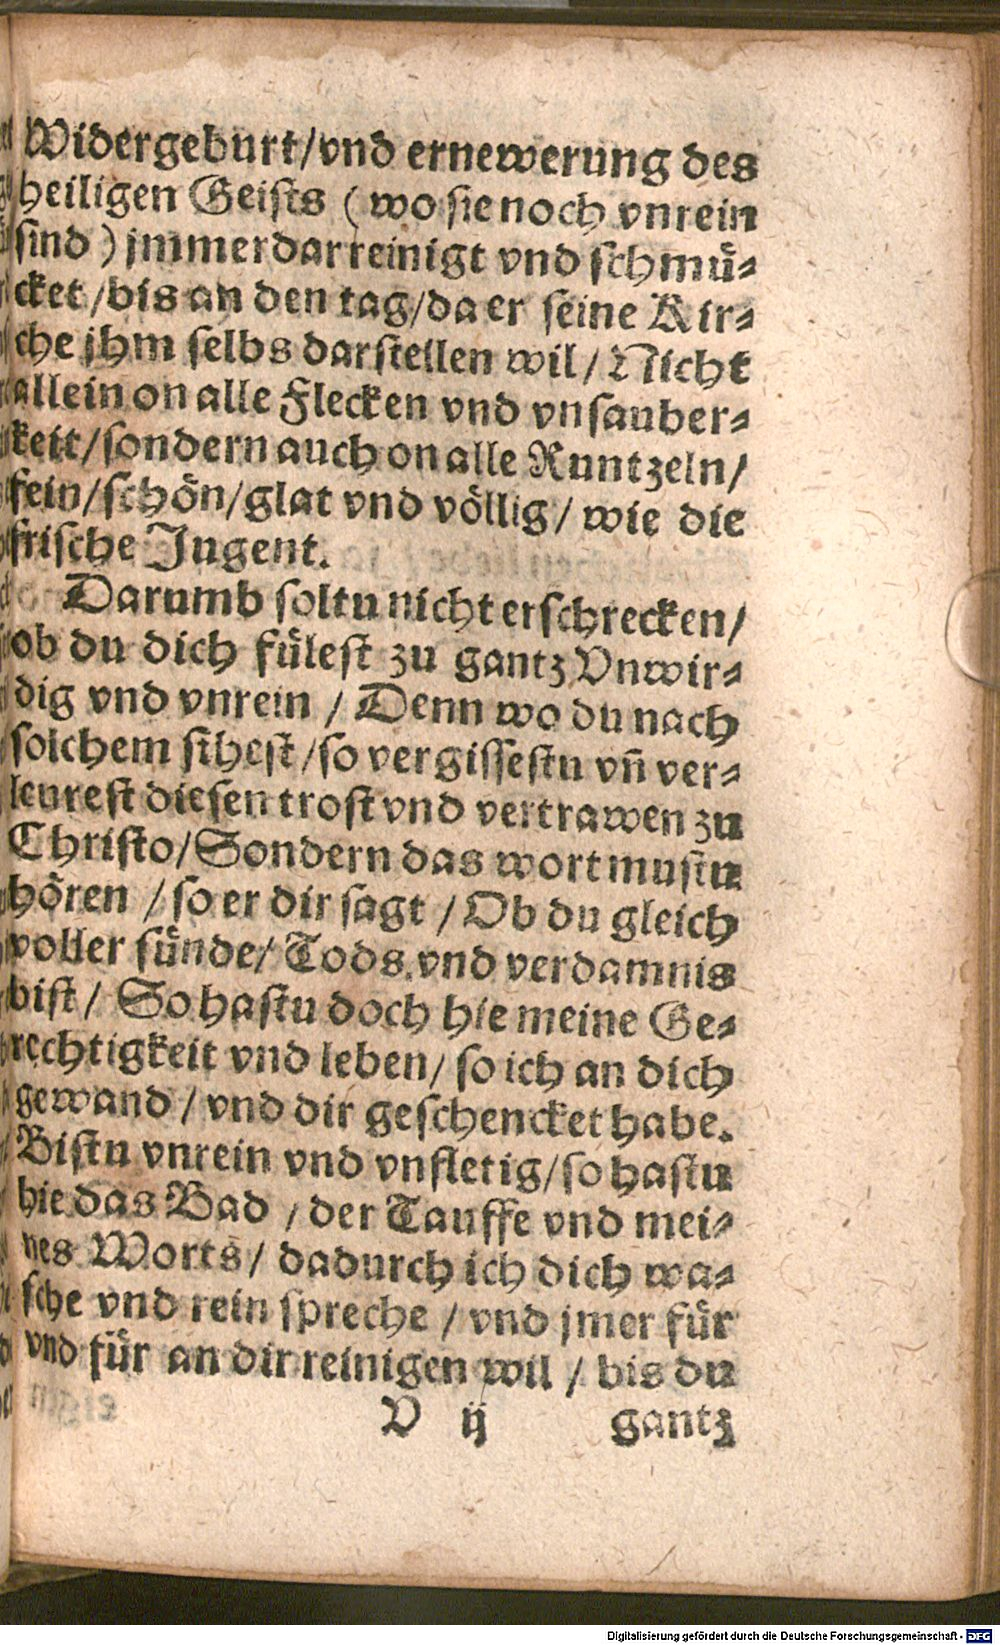 Widergeburt/vnd ernewerung des
heiligen Geists ( wo sie noch vnrein
sind ) jmmerdar reinigt vnd schmü⸗
cket /bis an den tag/da er seine Kir⸗
che jhm selbs darstellen wil/ Nicht
allein on alle Flecken vnd vnsauber⸗
keit/sondern auch on alle Runtzeln/
fein/schön/glat vnd völlig/ wie die
frische Jugent.
Darumb soltu nicht erschrecken/
ob du dich fülest zu gantz Vnwir⸗
dig vnd vnrein / Denn wo du nach
solchem sihest/so vergissestu vn̄ ver⸗
leurest diesen trost vnd vertrawen zu
Christo/Sondern das wort mustu
hören /so er dir sagt / Ob du gleich
voller sünde/ Tods vnd verdamnis
bist/ So hastu doch hie meine Ge⸗
rechtigkeit vnd leben/ so ich an dich
gewand / vnd dir geschencket habe.
Bistu vnrein vnd vnfletig/so hastu
hie das Bad / der Tauffe vnd mei⸗
nes Worts/ dadurch ich dich wa⸗
sche vnd rein spreche / vnd jmer für
vnd für an dir reinigen wil / bis du
V ij gantz
Digitalisierung gefördert durch die Deutsche Forschungsgemeinschaft - DFG